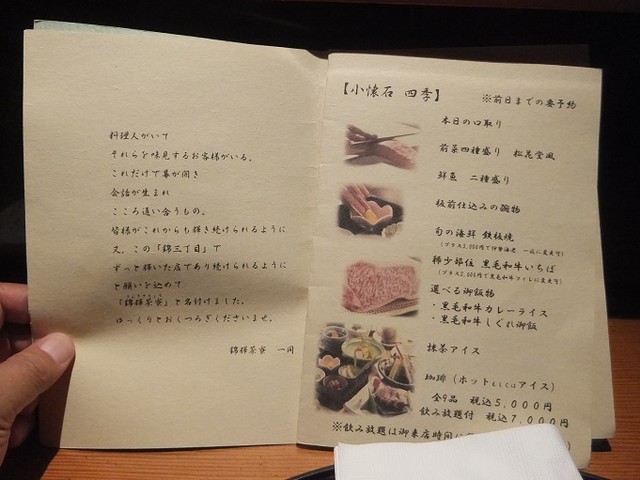 料理人がいて
それらを味見するお客様がいる。
これだけで幕が開き
会話が生まれ
こころ通い合うもの。
皆様がこれからも輝き続けられるように
又、この「錦三丁目」で
ずっと輝いた店であり続けられるように
と願いを込めて
「錦輝茶寮」と名付けました。
ゆっくりとおくつろぎくださいませ。
錦輝茶寮 一同
【小懐石 四季】
※前日までの要予約
本日の口取り
前菜四種盛り 松花堂風
鮮魚 二種盛り
板前仕込みの鍋物
旬の海鮮 鉄板焼
稀少部位 黒毛和牛いちぼ
選べる御飯物
・黒毛和牛カレーライス
・黒毛和牛しぐれ御飯
抹茶アイス
珈琲（ホットもしくはアイス）
全9品 税込5,000円
飲み放題付 税込7,000円
※飲み放題は御来店時間に